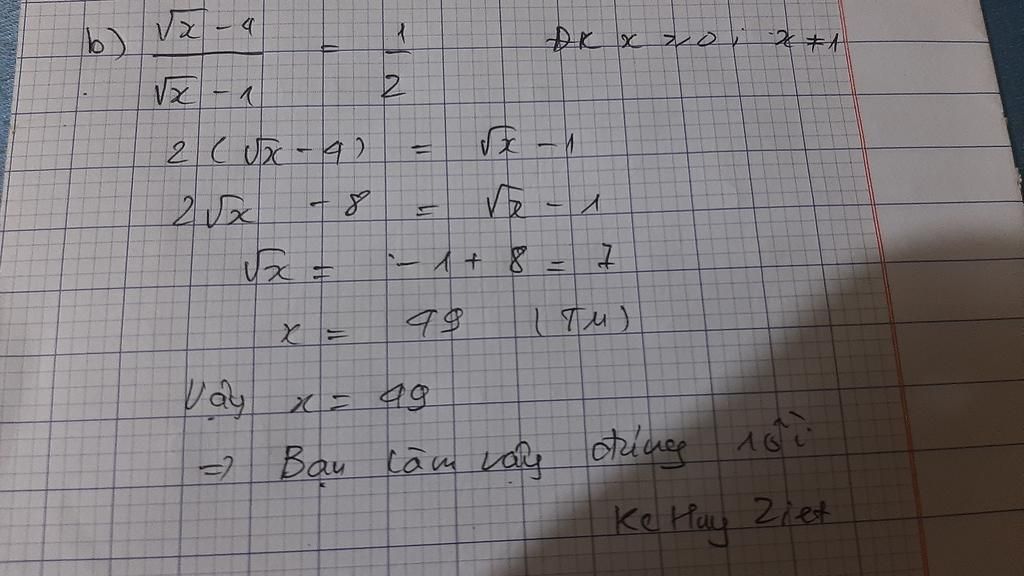 b) (√x - 4)/(√x - 1) = 1/2 ĐK x ≥ 0; x ≠ 1
2 (√x - 4) = √x - 1
2√x - 8 = √x - 1
√x = -1 + 8 = 7
x = 49 (TM)
Vậy x = 49
=> Bạn làm vậy đúng rồi